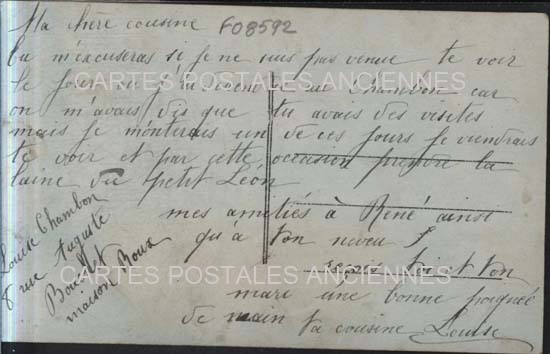 Ma chère cousine F08592
tu m'excuseras si je ne suis pas venue te voir
le jour où j'ai au Chambon car
CARTES POSTALES ANCIENNES
on m'avais dis que tu avais des visites
mais je un de ces jours je viendrais
te voir et par cette occasion prendre la
laine du petit Léon
mes amitiés à René ainsi
qu'à ton neveu
reçois toi et ton
CARTES POSTALES ANCIENNES
mari une bonne poignée
de main ta cousine Louise
Louise Chambon
8 rue Auguste
maison Roux